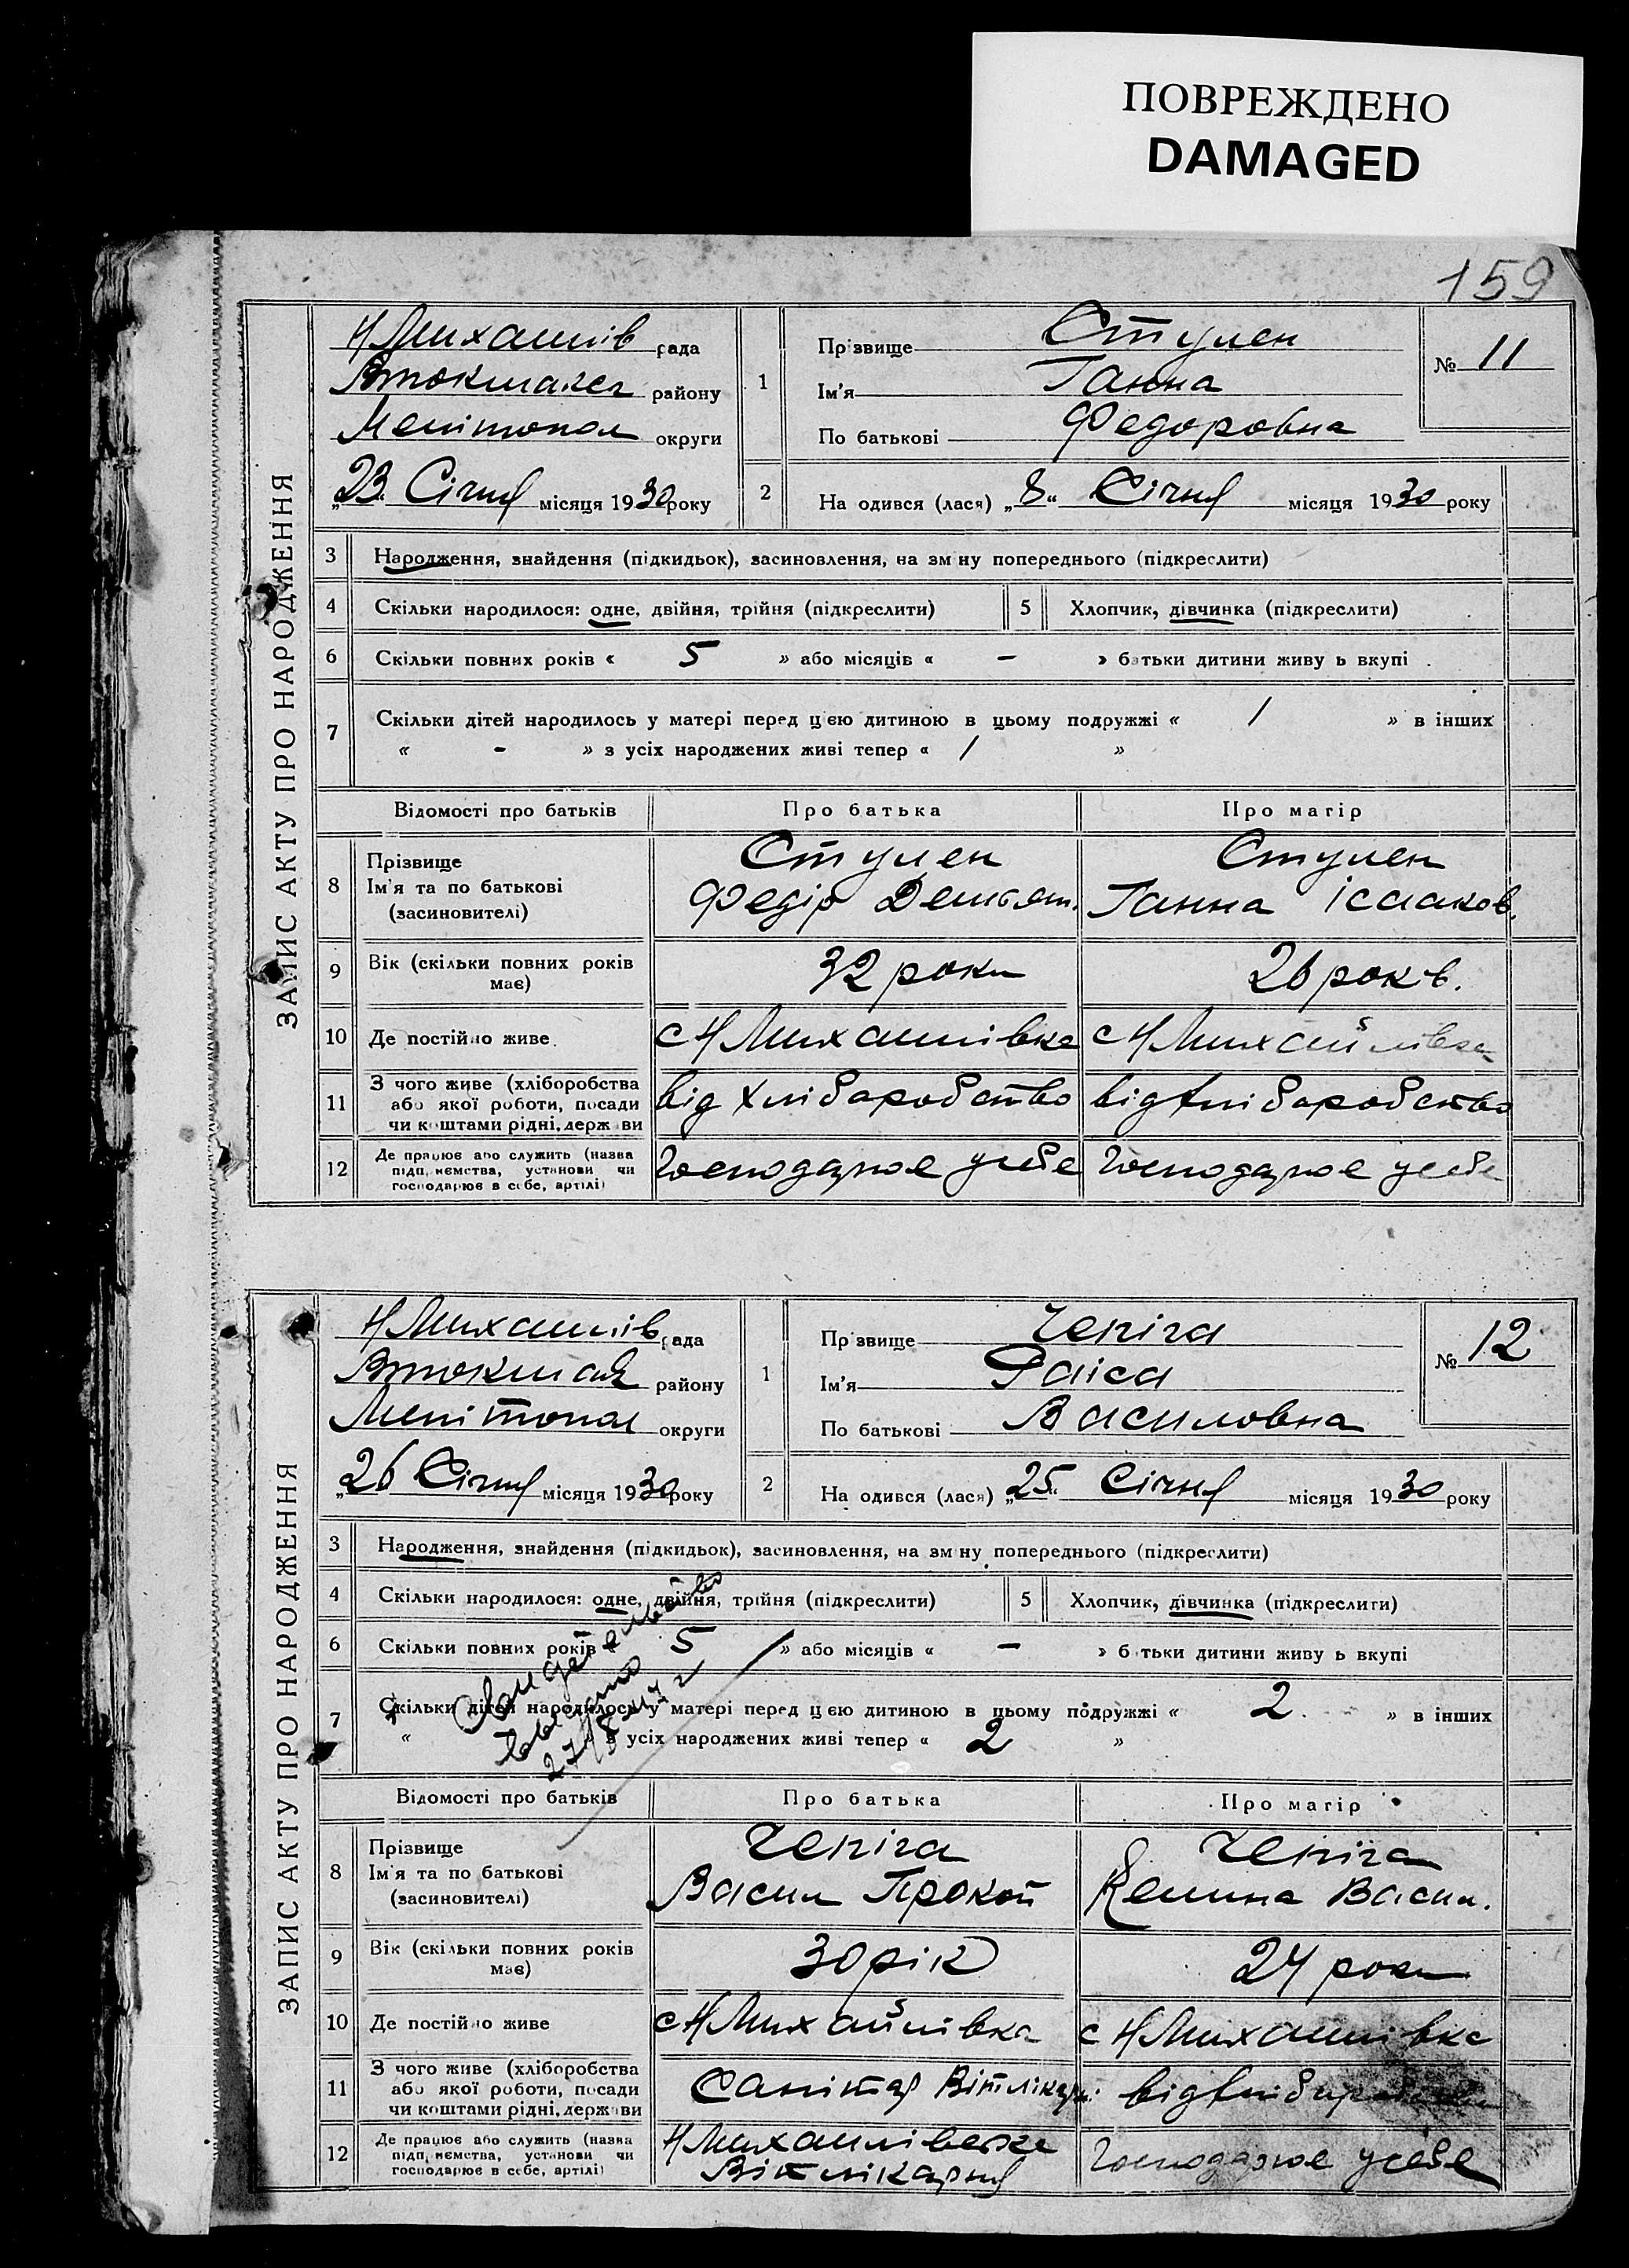 ПОВРЕЖДЕНО
DAMAGED
159
ЗАПИС АКТУ ПРО НАРОДЖЕННЯ
Н Михайлів рада
Втокмацьк району
Мелітопол округи
„23" Січня місяця 1930 року
1
Прізвище Стулен
Ім'я Ганна
По батькові Федоровна
№ 11
2
На одився (лася) „8" Січня місяця 1930 року
3 Народження, знайдення (підкидьок), засиновлення, на зм ну попереднього (підкреслити)
4 Скільки народилося: одне, двійня, трійня (підкреслити) 5 Хлопчик, дівчинка (підкреслити)
6 Скільки повних років « 5 » або місяців « — » батьки дитини живу ь вкупі
7 Скільки дітей народилось у матері перед цією дитиною в цьому подружжі « 1 » в інших
« - » з усіх народжених живі тепер « 1 »
Відомості про батьків Про батька Про матір
8 Прізвище
Ім'я та по батькові
(засиновителі)
Стулен
Федір Демьян.
Стулен
Ганна Ісааков.
9 Вік (скільки повних років
має)
32 роки
26 років.
10 Де постійно живе
с Н Михайлівка
с Н Михайлівка
11 З чого живе (хліборобства
або якої роботи, посади
чи коштами рідні, держави
від хліборобство
від хліборобство
12 Де працює або служить (назва
підприємства, установи чи
господарює в себе, артілі)
Господарює у себе
Господарює у себе
ЗАПИС АКТУ ПРО НАРОДЖЕННЯ
Н Михайлів рада
району
Мелітопол округи
„26 Січня місяця 1930 року
1
Прізвище Чепіга
Ім'я Раіса
По батькові Василовна
№ 12
2
На одився (лася) „25" Січня місяця 1930 року
3 Народження, знайдення (підкидьок), засиновлення, на зм ну попереднього (підкреслити)
4 Скільки народилося: одне, двійня, трійня (підкреслити) 5 Хлопчик, дівчинка (підкреслити)
6 Скільки повних років « 5 » або місяців « — » б тьки дитини живу ь вкупі
7 Скільки дітей народилось у матері перед цією дитиною в цьому подружжі « 2 » в інших
« з усіх народжених живі тепер « 2 »
Свидетельство
выдано
Відомості про батьків Про батька Про матір
8 Прізвище
Ім'я та по батькові
(засиновителі)
Чепіга
Васил Прокоп
Чепіга
Васил.
9 Вік (скільки повних років
має)
30 рік
24 роки
10 Де постійно живе
с Н Михайлівка
с Н Михайлівка
11 З чого живе (хліборобства
або якої роботи, посади
чи коштами рідні, держави
Санітар Вітлікар.
12 Де працює або служить (назва
підприємства, установи чи
господарює в себе, артілі)
Н Михайлівська
Вітлікарня
Господарює у себе